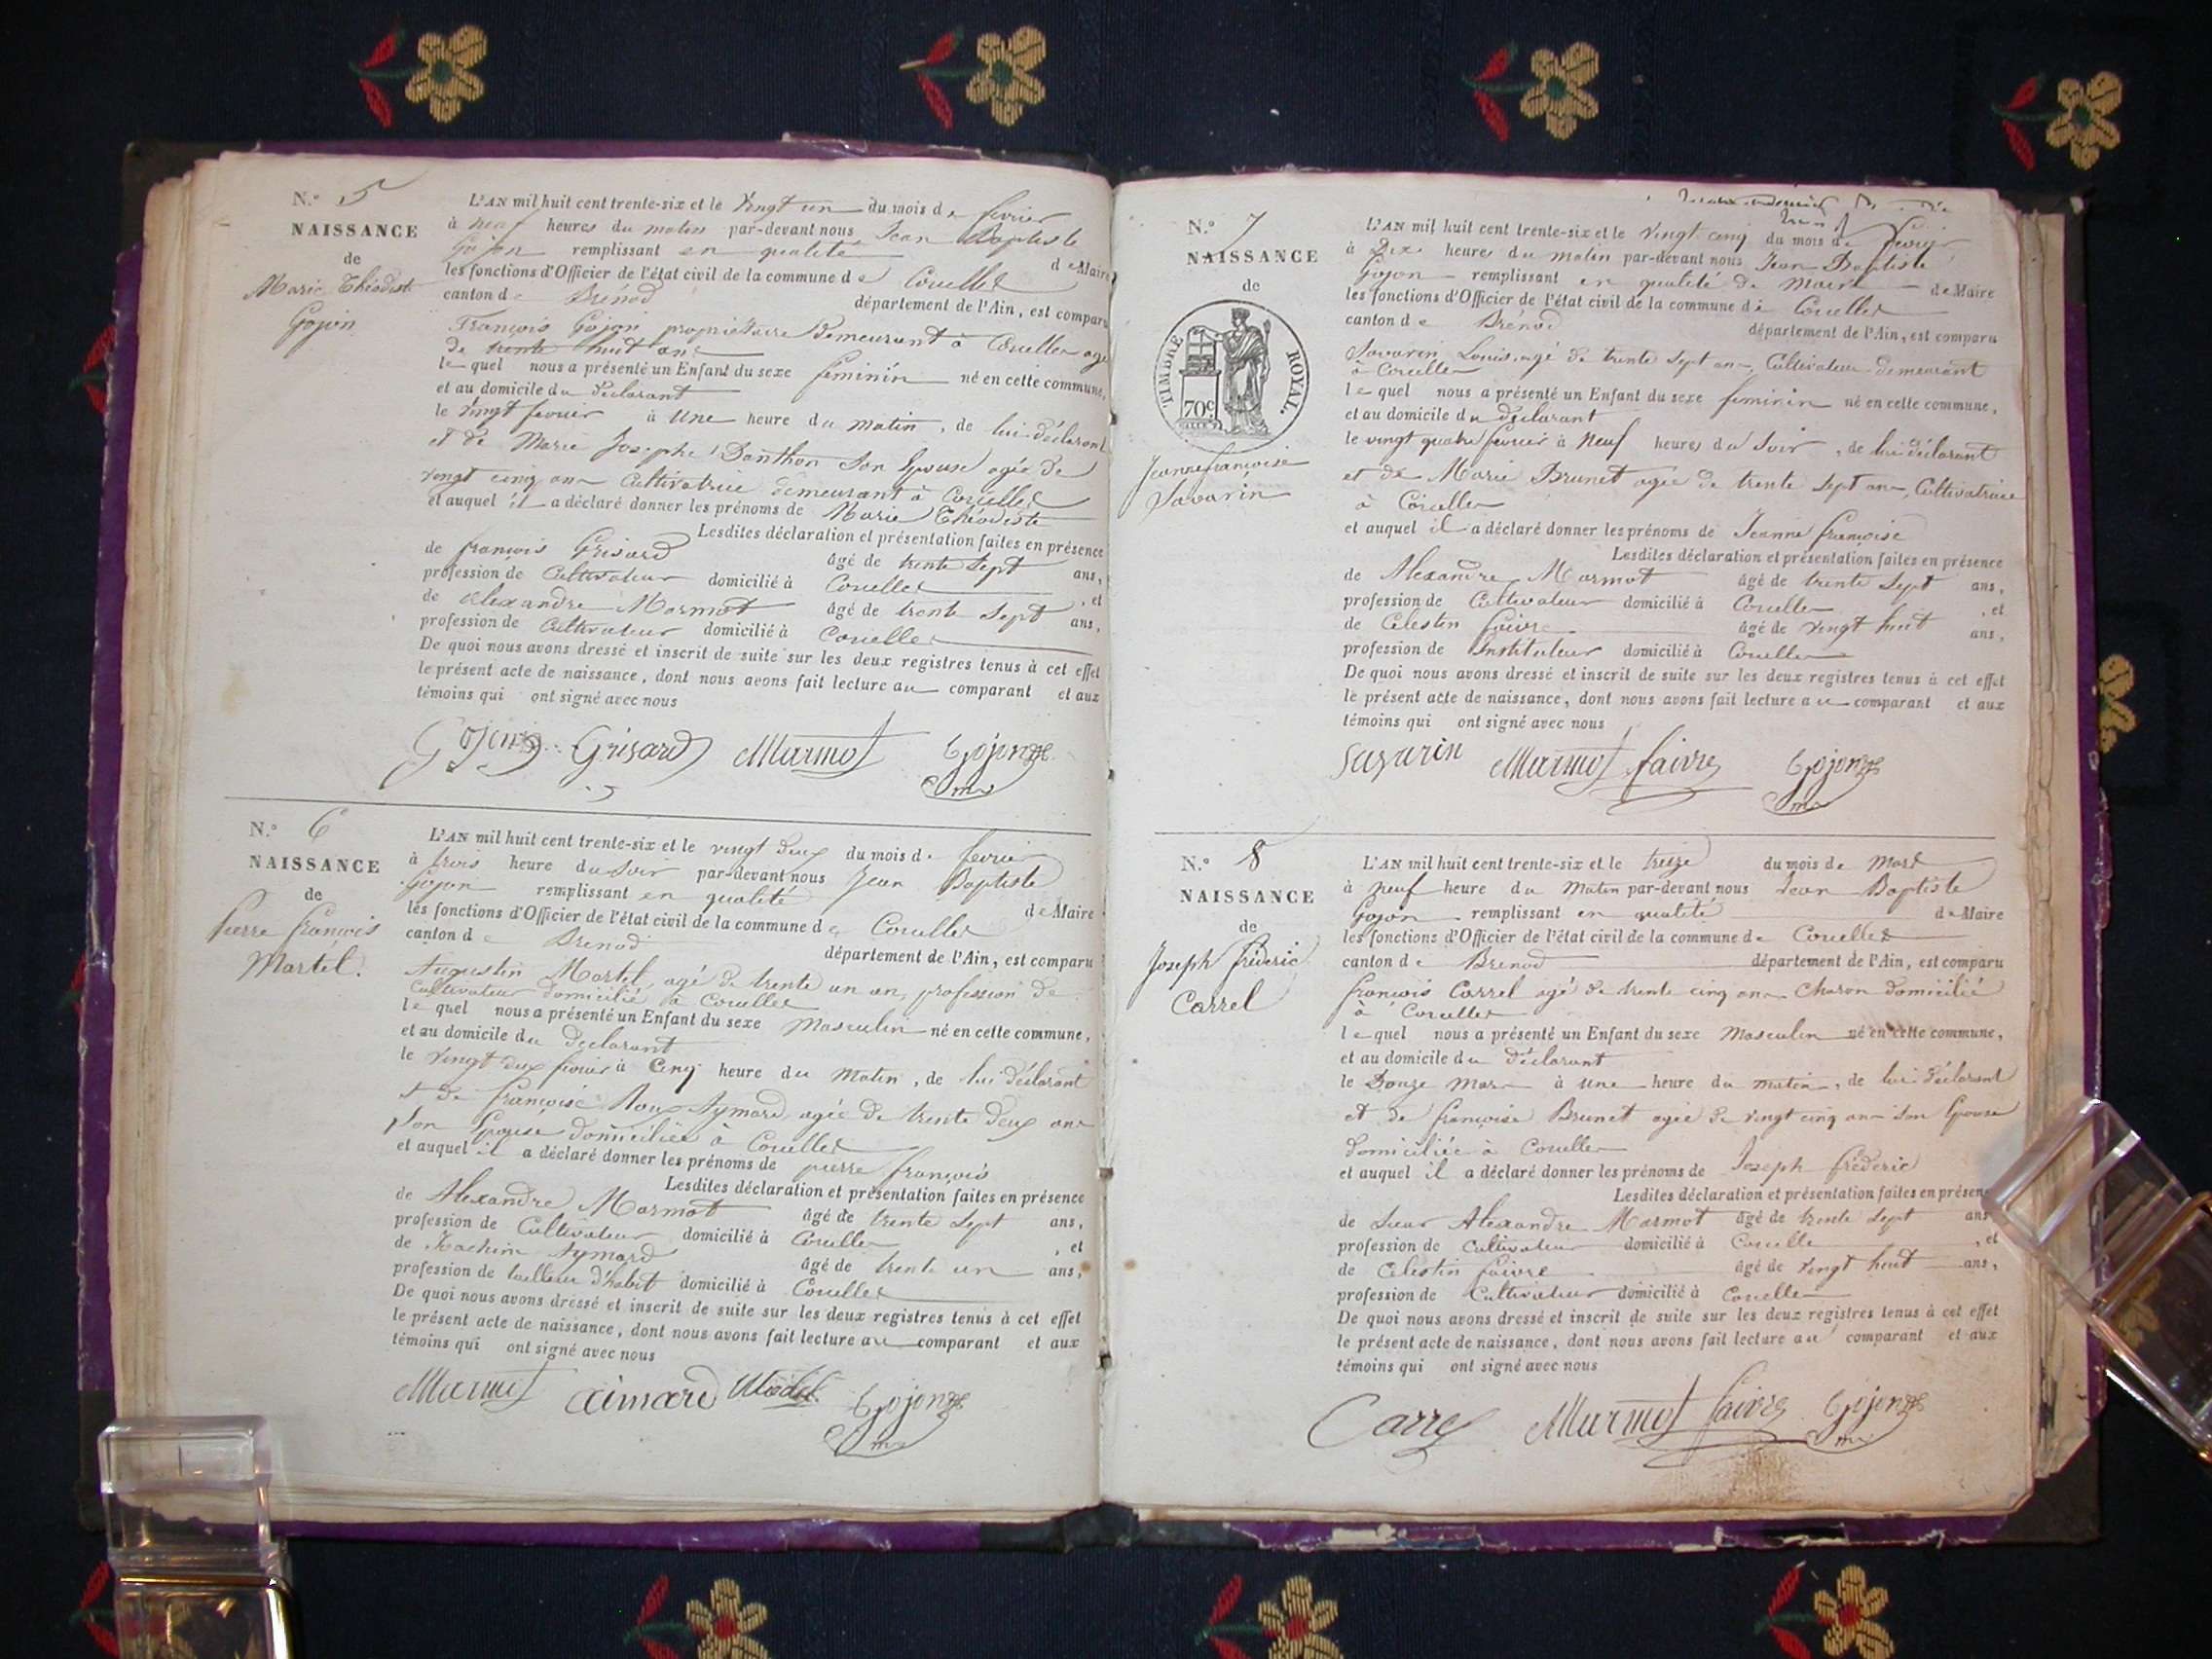 N.° 5
NAISSANCE
de
Marie Théodiste
Gojon
L'AN mil huit cent trente-six et le vingt un du mois de fevrier
à neuf heures du matin par-devant nous Jean Baptiste
Gojon remplissant en qualité de Maire
les fonctions d'Officier de l'état civil de la commune de Corcelles
canton de Brénod département de l'Ain, est comparu
François Gojon propriétaire Demeurant à Corcelles agé
de trente huit ans
lequel nous a présenté un Enfant du sexe feminin né en cette commune,
et au domicile du déclarant
le vingt fevrier à une heure du matin, de lui déclarant
et de Marie Josephe Danthon son Epouse agée de
vingt cinq ans Cultivatrice demeurant à Corcelles
et auquel il a déclaré donner les prénoms de Marie Théodiste
Lesdites déclaration et présentation faites en présence
de françois Grisard âgé de trente sept ans,
profession de Cultivateur domicilié à Corcelles, et
de Alexandre Marmot âgé de trente sept ans,
profession de Cultivateur domicilié à Corcelles
De quoi nous avons dressé et inscrit de suite sur les deux registres tenus à cet effet
le présent acte de naissance, dont nous avons fait lecture au comparant et aux
témoins qui ont signé avec nous
Gojon Grisard Marmot Gojon
N.° 6
NAISSANCE
de
Pierre François
Martel.
L'AN mil huit cent trente-six et le vingt deux du mois de fevrier
à trois heure du soir par-devant nous Jean Baptiste
Gojon remplissant en qualité de Maire
les fonctions d'Officier de l'état civil de la commune de Corcelles
canton de Brenod département de l'Ain, est comparu
Augustin Martel, agé de trente un an, profession de
Cultivateur domicilié à Corcelles
lequel nous a présenté un Enfant du sexe Masculin né en cette commune,
et au domicile du declarant
le vingt deux fevrier à Cinq heure du Matin, de lui déclarant
et de françoise Roux Aymard agée de trente deux ans
son Epouse domiciliée à Corcelles
et auquel il a déclaré donner les prénoms de pierre françois
Lesdites déclaration et présentation faites en présence
de Alexandre Marmot âgé de trente sept ans,
profession de Cultivateur domicilié à Corcelles, et
de Joachim Aymard âgé de trente un ans,
profession de tailleur d'habit domicilié à Corcelles
De quoi nous avons dressé et inscrit de suite sur les deux registres tenus à cet effet
le présent acte de naissance, dont nous avons fait lecture au comparant et aux
témoins qui ont signé avec nous
Marmot aimard Martel Gojon
N.° 7
NAISSANCE
de
TIMBRE ROYAL.
70c
Jeanne françoise
Savarin
L'AN mil huit cent trente-six et le vingt cinq du mois de fevrier
à Dix heures du matin par-devant nous Jean Baptiste
Gojon remplissant en qualité de maire de Maire
les fonctions d'Officier de l'état civil de la commune de Corcelles
canton de Brénod département de l'Ain, est comparu
Savarin Louis, agé de trente sept ans, Cultivateur demeurant
à Corcelles
lequel nous a présenté un Enfant du sexe feminin né en cette commune,
et au domicile du déclarant
le vingt quatre fevrier à Neuf heures du Soir, de lui déclarant
et de Marie Brunet agée de trente sept ans, Cultivatrice
à Corcelles
et auquel il a déclaré donner les prénoms de Jeanne françoise
Lesdites déclaration et présentation faites en présence
de Alexandre Marmot âgé de trente sept ans,
profession de Cultivateur domicilié à Corcelles, et
de Celestin faivre âgé de vingt huit ans,
profession de Instituteur domicilié à Corcelles
De quoi nous avons dressé et inscrit de suite sur les deux registres tenus à cet effet
le présent acte de naissance, dont nous avons fait lecture au comparant et aux
témoins qui ont signé avec nous
Savarin Marmot faivre Gojon
N.° 8
NAISSANCE
de
Joseph fréderic
Carrel
L'AN mil huit cent trente-six et le treize du mois de Mars
à neuf heure du Matin par-devant nous Jean Baptiste
Gojon remplissant en qualité de Maire
les fonctions d'Officier de l'état civil de la commune de Corcelles
canton de Brenod département de l'Ain, est comparu
françois Carrel agé de trente cinq ans Charon domicilié
à Corcelles
lequel nous a présenté un Enfant du sexe Masculin né en cette commune,
et au domicile du déclarant
le Douze Mars à une heure du matin, de lui déclarant
et de françoise Brunet agée de vingt cinq ans son Epouse
domiciliée à Corcelles
et auquel il a déclaré donner les prénoms de Joseph fréderic
Lesdites déclaration et présentation faites en présen
de Sieur Alexandre Marmot âgé de trente sept ans
profession de Cultivateur domicilié à Corcelle, et
de Celestin faivre âgé de vingt huit ans,
profession de Cultivateur domicilié à Corcelles
De quoi nous avons dressé et inscrit de suite sur les deux registres tenus à cet effet
le présent acte de naissance, dont nous avons fait lecture au comparant et aux
témoins qui ont signé avec nous
Carrel Marmot faivre Gojon